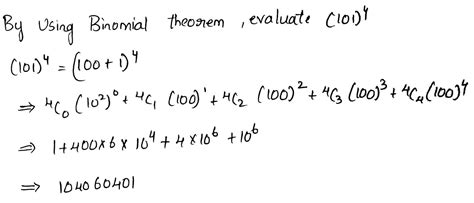 By Using Binomial theorem , evaluate (101)⁴
(101)⁴ = (100 + 1)⁴
⇒ ⁴C₀ (10²)⁰ + ⁴C₁ (100)¹ + ⁴C₂ (100)² + ⁴C₃ (100)³ + ⁴C₄ (100)⁴
⇒ 1 + 400 × 6 × 10⁴ + 4 × 10⁶ + 10⁶
⇒ 104060401